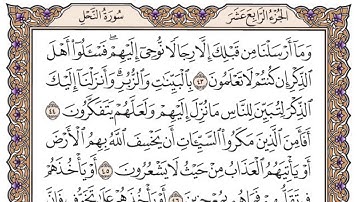 الجزء الرابع عشر سورة النحل
وَمَآ أَرْسَلْنَا مِن قَبْلِكَ إِلَّا رِجَالًا نُّوحِىٓ إِلَيْهِمْ ۚ فَسْـَٔلُوٓا۟ أَهْلَ
ٱلذِّكْرِ إِن كُنتُمْ لَا تَعْلَمُونَ ٤٣ بِٱلْبَيِّنَـٰتِ وَٱلزُّبُرِ ۗ وَأَنزَلْنَآ إِلَيْكَ
ٱلذِّكْرَ لِتُبَيِّنَ لِلنَّاسِ مَا نُزِّلَ إِلَيْهِمْ وَلَعَلَّهُمْ يَتَفَكَّرُونَ ٤٤
أَفَأَمِنَ ٱلَّذِينَ مَكَرُوا۟ ٱلسَّيِّـَٔاتِ أَن يَخْسِفَ ٱللَّهُ بِهِمُ ٱلْأَرْضَ
أَوْ يَأْتِيَهُمُ ٱلْعَذَابُ مِنْ حَيْثُ لَا يَشْعُرُونَ ٤٥ أَوْ يَأْخُذَهُمْ
فِى تَقَلُّبِهِمْ فَمَا هُم بِمُعْجِزِينَ ٤٦ أَوْ يَأْخُذَهُمْ عَلَىٰ تَخَوُّفٍ فَإِنَّ